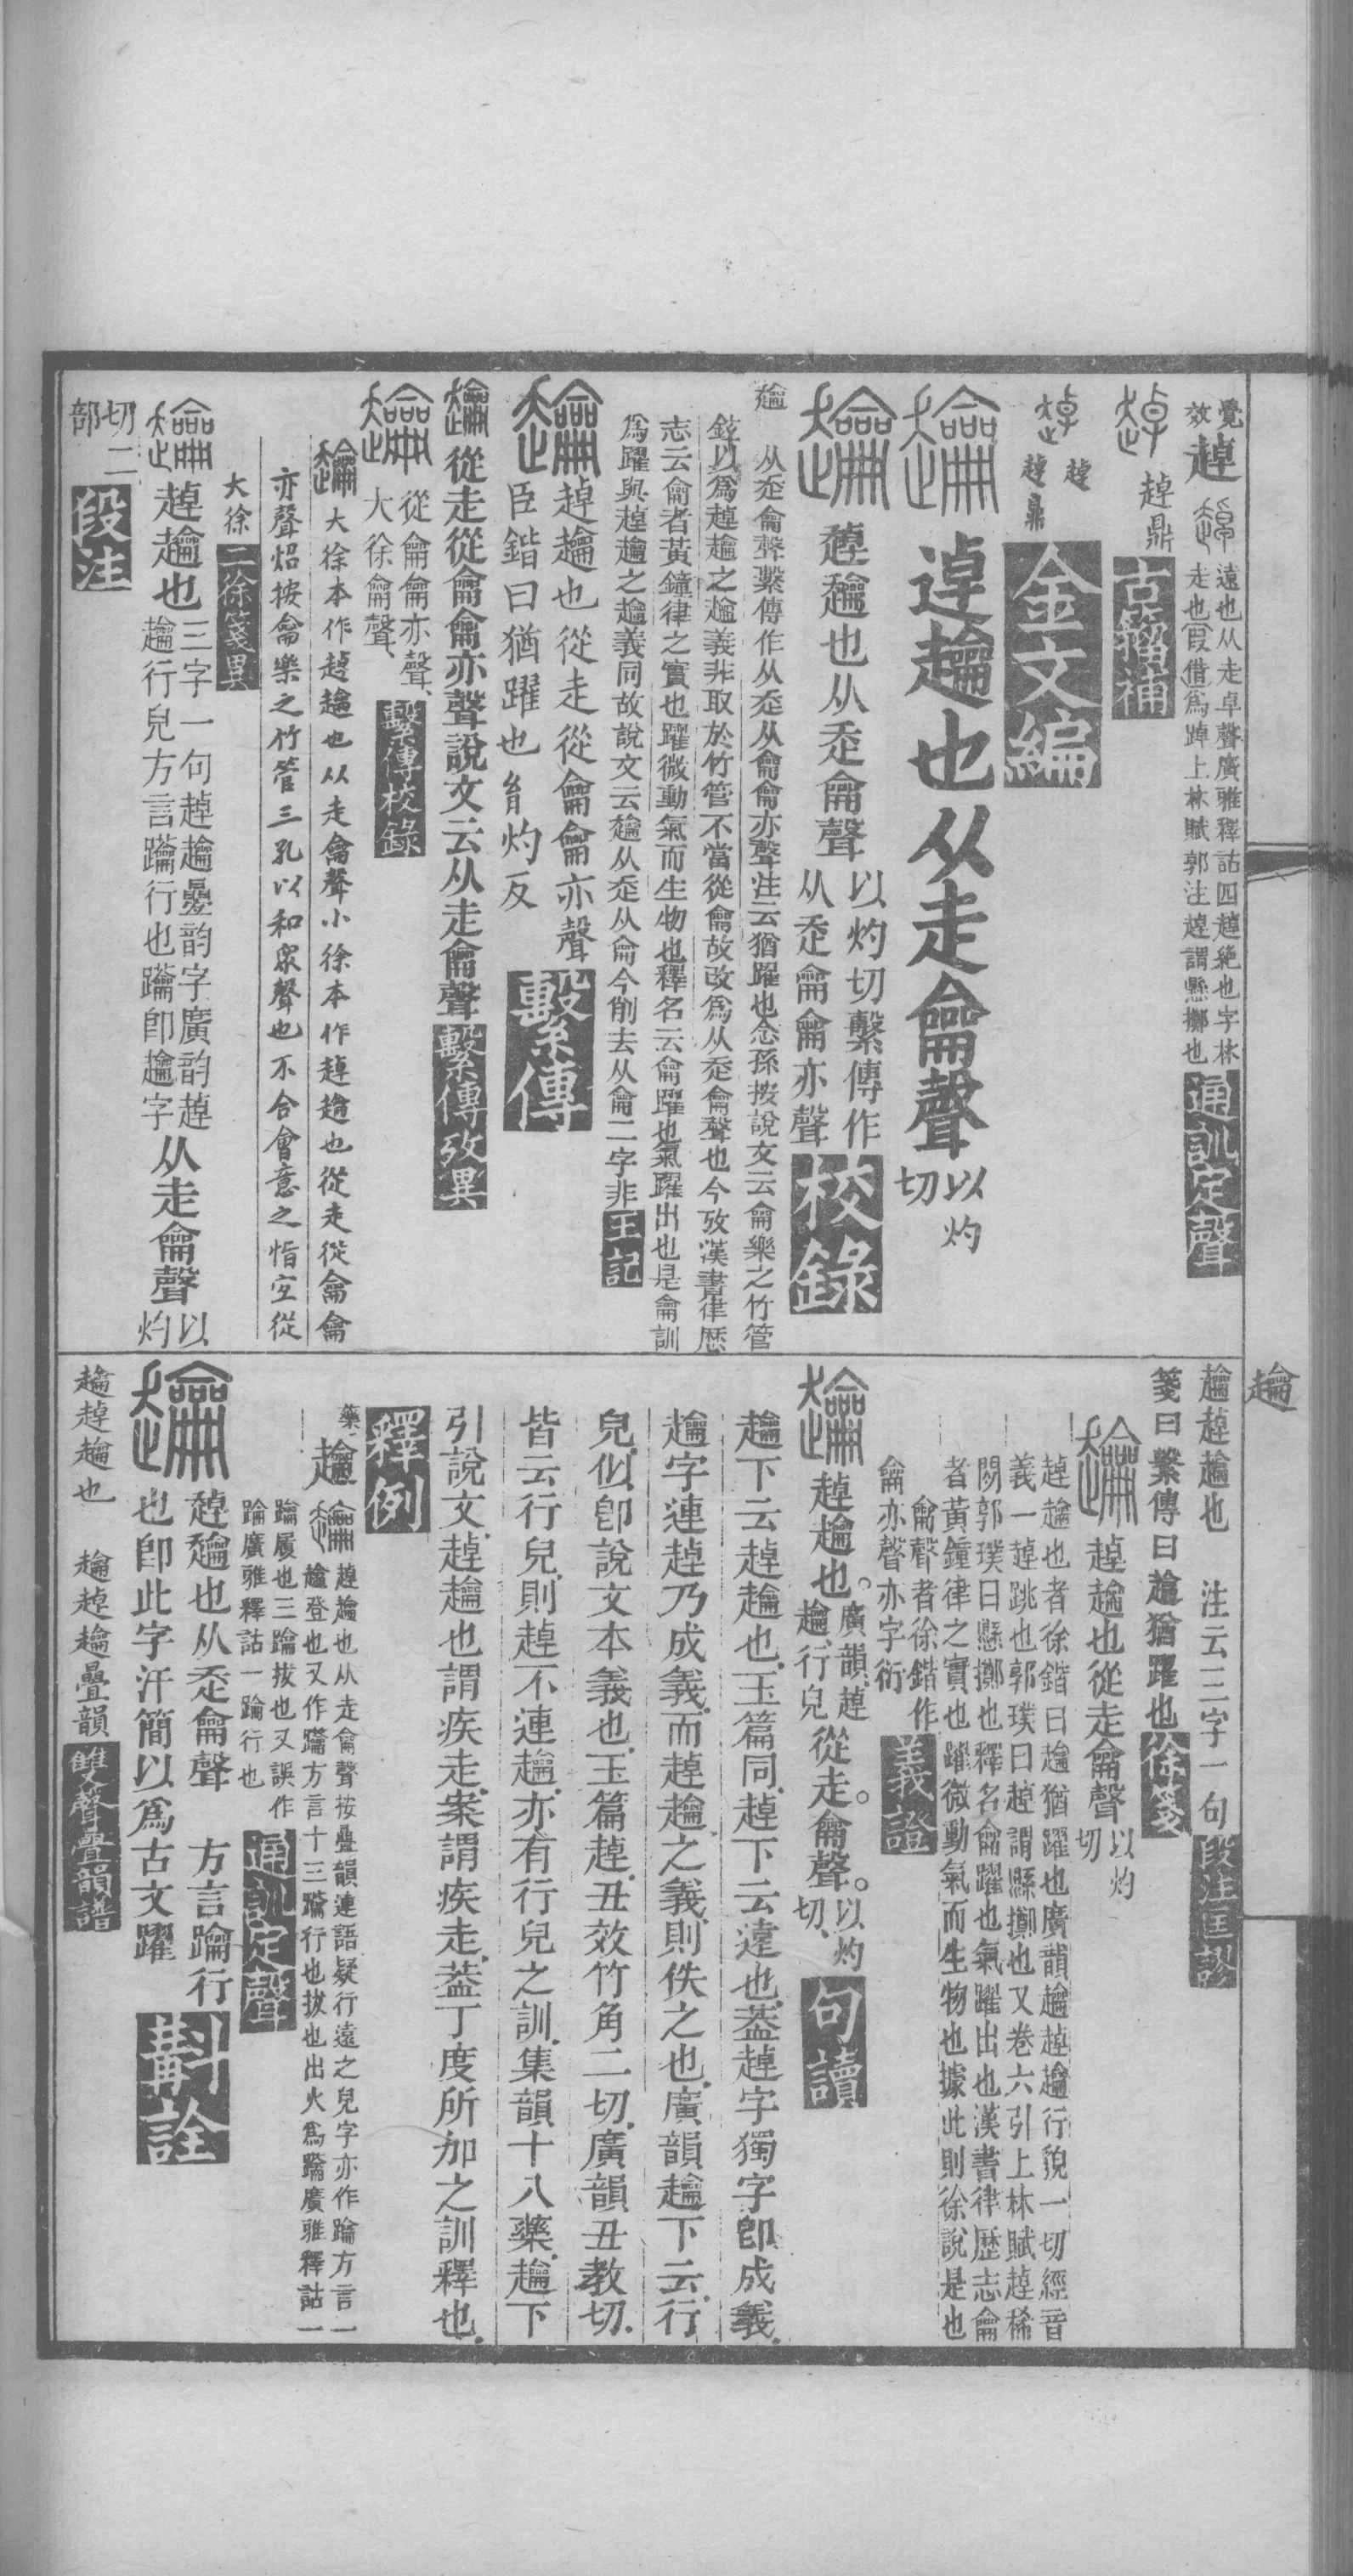 覺
效
趠
遠也从走卓聲廣雅釋詁四趠絶也字林
走也叚借爲踔上林賦郭注趠謂懸擲也
通訓定聲
趠鼎
古籀補
趠
趠鼎
金文編
趠䟑也从走龠聲
以灼
切
趠䟑也从𧺆龠聲
以灼切繫傳作
从𧺆龠龠亦聲
校錄
䟑
从𧺆龠聲繫傳作从𧺆从龠龠亦聲注云猶躍也念孫按說文云龠樂之竹管
鉉以爲趠䟑之䟑義非取於竹管不當從龠故改爲从𧺆龠聲也今攷漢書律歷
志云龠者黃鐘律之實也躍微動氣而生物也釋名云龠躍也氣躍出也是龠訓
爲躍與趠䟑之䟑義同故說文云䟑从𧺆从龠今削去从龠二字非
王記
趠䟑也從走從龠龠亦聲
臣鍇曰猶躍也𠂭灼反
繫傳
䟑從走從龠龠亦聲說文云从走龠聲
繫傳攷異
從龠龠亦聲、
大徐龠聲、
繫傳校錄
䟑大徐本作趠䟑也从走龠聲小徐本作趠䟑也從走從龠龠
亦聲炤按龠樂之竹管三孔以和衆聲也不合會意之恉宜從
大徐
二徐箋異
趠䟑也
三字一句趠䟑曡韵字廣韵趠
䟑行皃方言躣行也躣卽䟑字
从走龠聲
以
灼
切
二
部
段注
䟑
䟑趠䟑也 注云三字一句
段注匡謬
箋曰繫傳曰䟑猶躍也
徐箋
趠䟑也從走龠聲
以灼
切
趠䟑也者徐鍇曰䟑猶躍也廣韻䟑趠䟑行貌一切經音
義一趠跳也郭璞曰趠謂縣擲也又卷六引上林賦趠稀
閒郭璞曰懸擲也釋名龠躍也氣躍出也漢書律歷志龠
者黃鐘律之實也躍微動氣而生物也據此則徐說是也
龠聲者徐鍇作
龠亦聲亦字衍
義證
趠䟑也。
廣韻、趠
䟑、行皃
從走。龠聲。
以灼
切、
句讀
䟑下云趠䟑也.玉篇同.趠下云遠也.葢趠字獨字卽成義.
䟑字連趠乃成義.而趠䟑之義.則佚之也.廣韻䟑下云.行
皃.似卽說文本義也.玉篇趠.丑效竹角二切.廣韻丑教切.
皆云行皃.則趠不連䟑.亦有行皃之訓.集韻十八藥.䟑下
引說文.趠䟑也謂疾走.案謂疾走.葢丁度所加之訓釋也.
釋例
藥、
䟑
趠䟑也从走龠聲按曡韻連語疑行遠之皃字亦作踚方言一
䟑登也又作躣方言十三躣行也拔也出火爲躣廣雅釋詁一
踚履也三踚拔也又誤作
踚廣雅釋詁一踚行也
通訓定聲
趠䟑也从𧺆龠聲 方言踚行
也卽此字汗簡以爲古文躍
斠詮
䟑趠䟑也 䟑趠䟑疊韻
雙聲疊韻譜